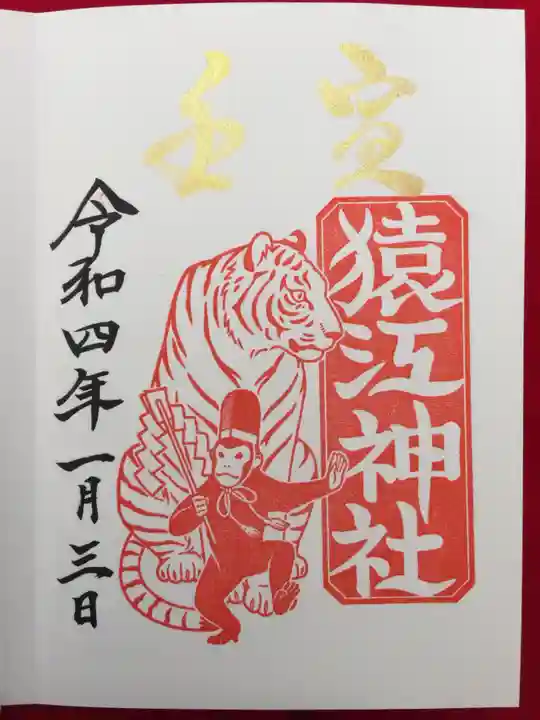 壬寅
猿江神社
令和四年一月三日